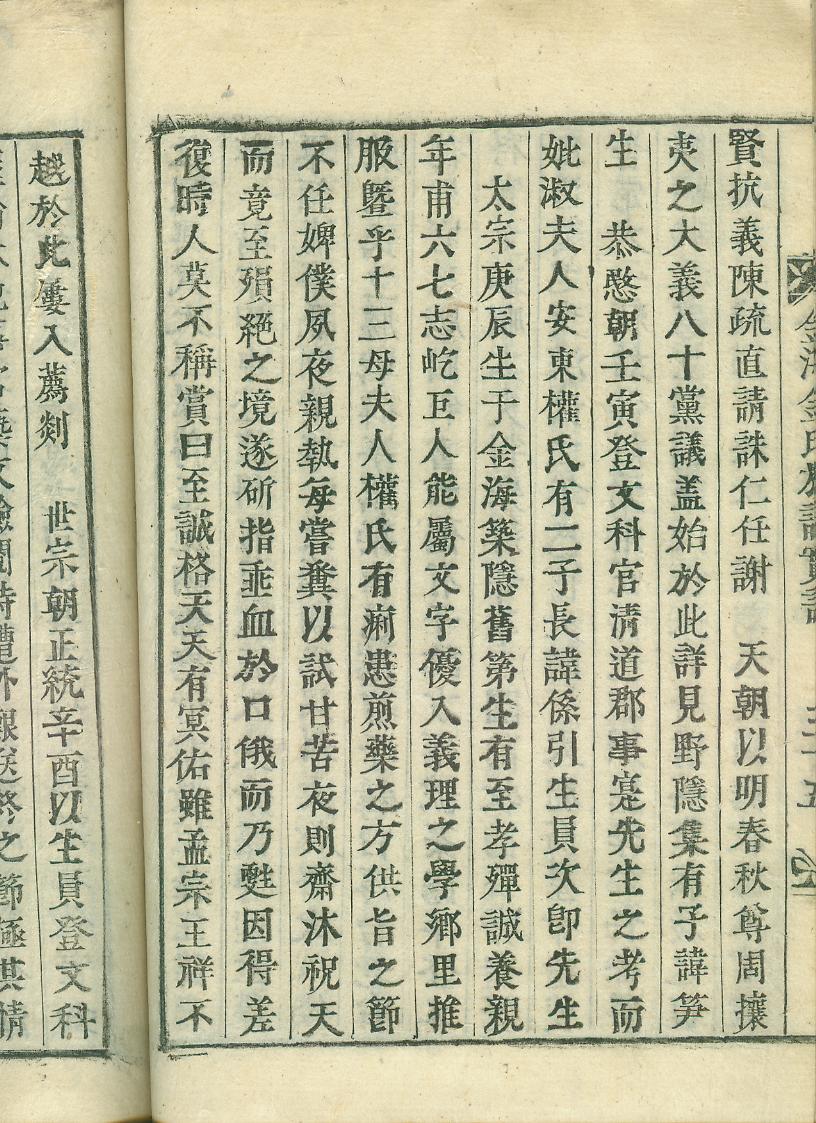 金海金氏族譜實記
三十五
賢抗義陳疏直請誅仁任謝　天朝以明春秋尊周攘
夷之大義八十黨議盖始於此詳見野隱集有子諱笋
生　恭愍朝壬寅登文科官清道郡事寔先生之考而
妣淑夫人安東權氏有二子長諱係引生員次卽先生
太宗庚辰生于金海築隱舊第生有至孝殫誠養親
年甫六七志屹巨人能屬文字優入義理之學鄉里推
服曁乎十三母夫人權氏有痢患煎藥之方供旨之節
不任婢僕夙夜親執每嘗糞以試甘苦夜則齋沐祝天
而竟至殞絕之境遂斫指垂血於口俄而乃甦因得差
復時人莫不稱賞曰至誠格天天有冥佑雖孟宗王祥不
越於此屢入薦剡　世宗朝正統辛酉以生員登文科